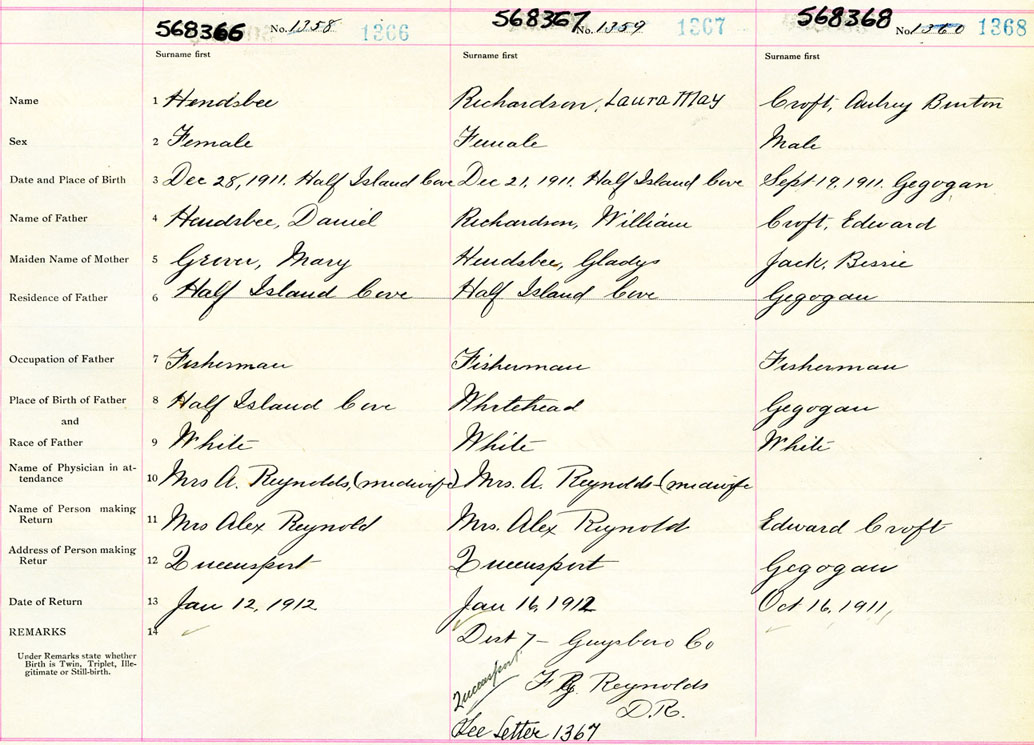 568366 No. 1358 1366 568367 No. 1359 1367 568368 No. 1360 1368
Surname first Surname first Surname first
Name 1 Hendsbee Richardson, Laura May Croft, Aubrey Burton
Sex 2 Female Female Male
Date and Place of Birth 3 Dec 28, 1911. Half Island Cove Dec 21, 1911. Half Island Cove Sept 19, 1911. Gegogan
Name of Father 4 Hendsbee, Daniel Richardson, William Croft, Edward
Maiden Name of Mother 5 Grover, Mary Hendsbee, Gladys Jack, Bessie
Residence of Father 6 Half Island Cove Half Island Cove Gegogan
Occupation of Father 7 Fisherman Fisherman Fisherman
Place of Birth of Father 8 Half Island Cove Whitehead Gegogan
and
Race of Father 9 White White White
Name of Physician in at-
tendance 10 Mrs A. Reynolds, (midwife) Mrs. A. Reynolds - (midwife
Name of Person making
Return 11 Mrs Alex Reynold Mrs. Alex Reynold Edward Croft
Address of Person making
Retur 12 Queensport Queensport Gegogan
Date of Return 13 Jan 12, 1912. Jan 16, 1912 Oct 16, 1911,
REMARKS 14
Dist 7 - Guysboro Co
Under Remarks state whether
Birth is Twin, Triplet, Ille-
gitimate or Still-birth.
Queensport
F G Reynolds
D.R.
See Letter 1367